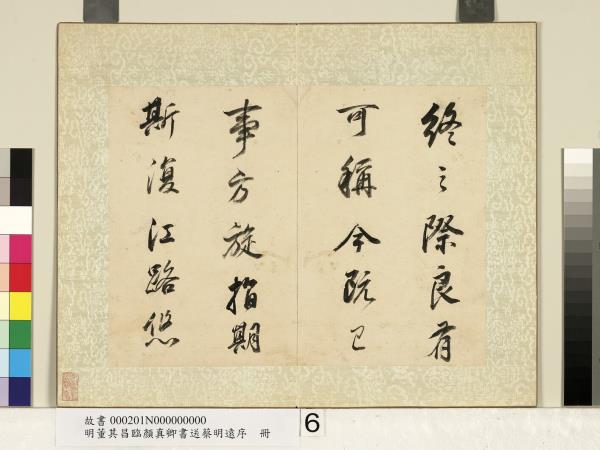 終之際良有
可稱今既已
事方旋指期
斯復江路悠
故書 000201N000000000
明董其昌臨顏真卿書送蔡明遠序 冊
6